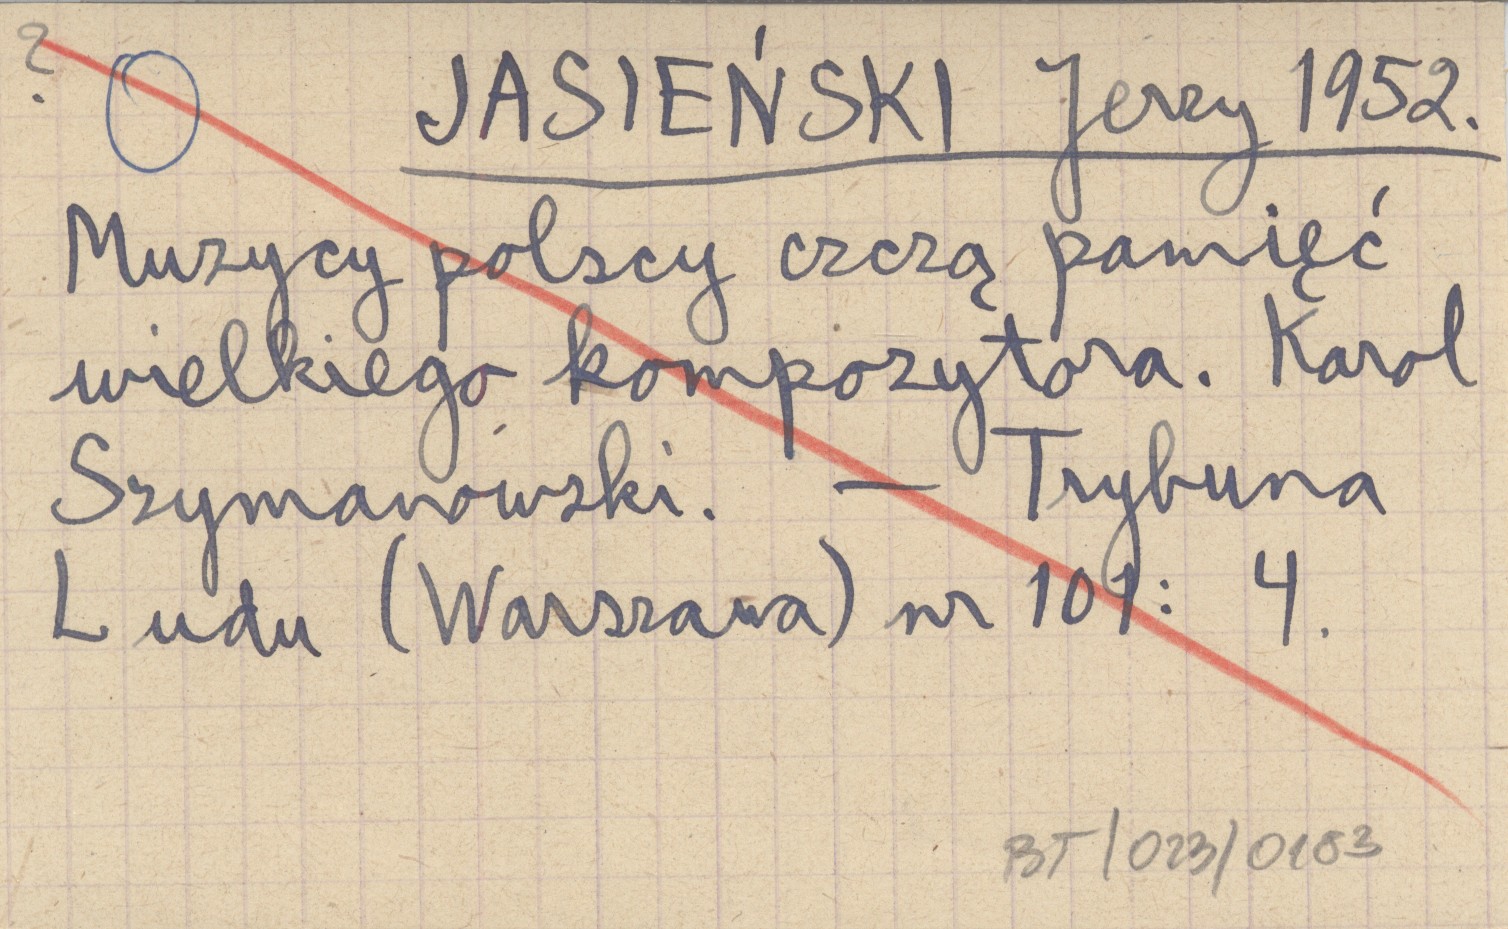 ?
JASIEŃSKI Jerzy 1952.
Muzycy polscy czczą pamięć
wielkiego kompozytora. Karol
Szymanowski. — Trybuna
Ludu (Warszawa) nr 101: 4.
BT/023/0183